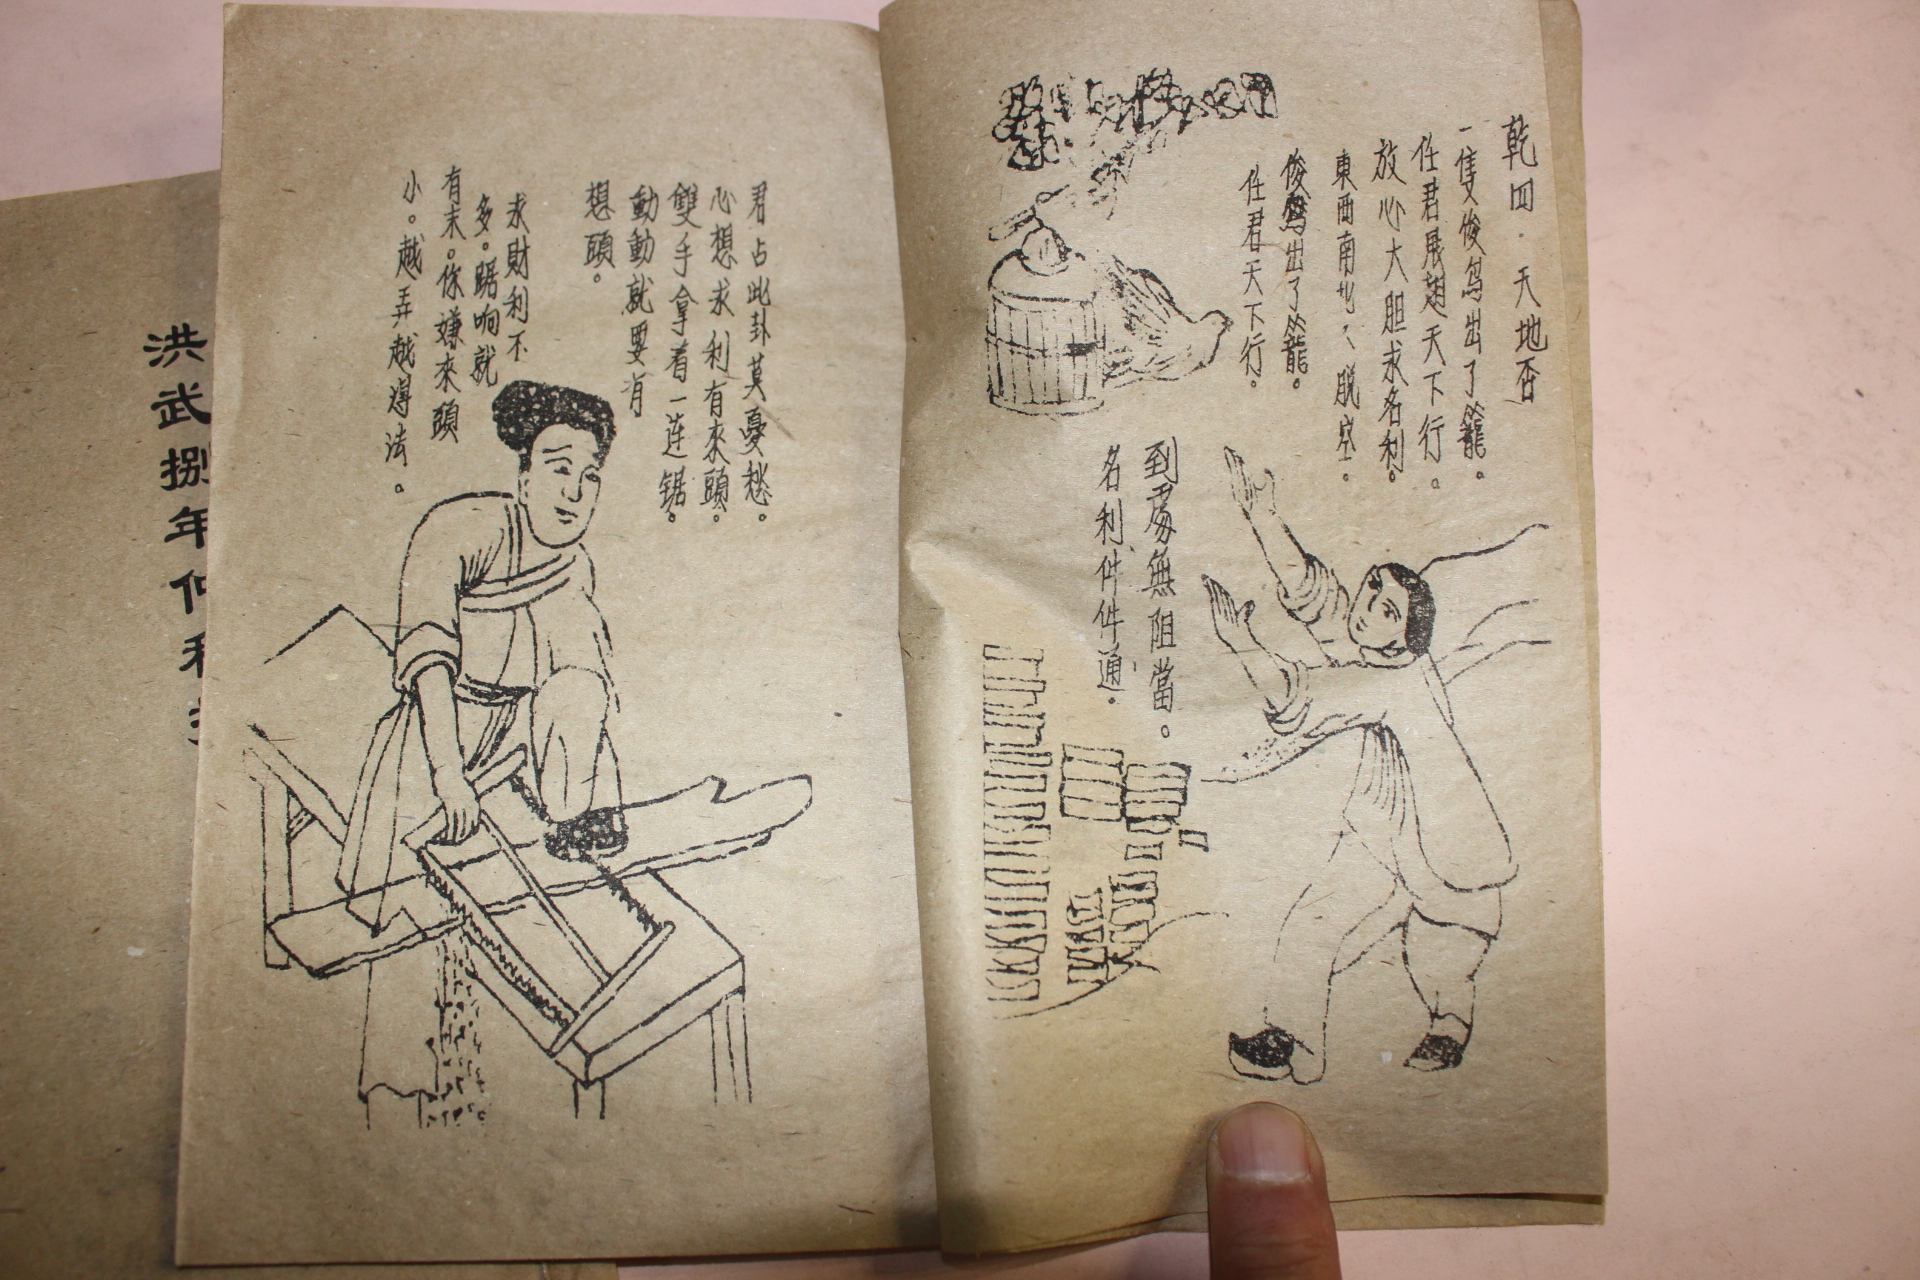 乾四.天地否
一隻俊鸟出了籠。
任君展翅天下行。
放心大胆求名利。
東西南北、脱空.
俊鸟出了籠。
任君天下行。
到處無阻當。
名利件件通.
君占此卦莫憂愁。
心想求利有來頭。
雙手拿着一连锯。
動動就要有
想頭。
求財利不
多。踞响就
有末。你嫌來頭
小。越弄越得法。
洪武捌年仲